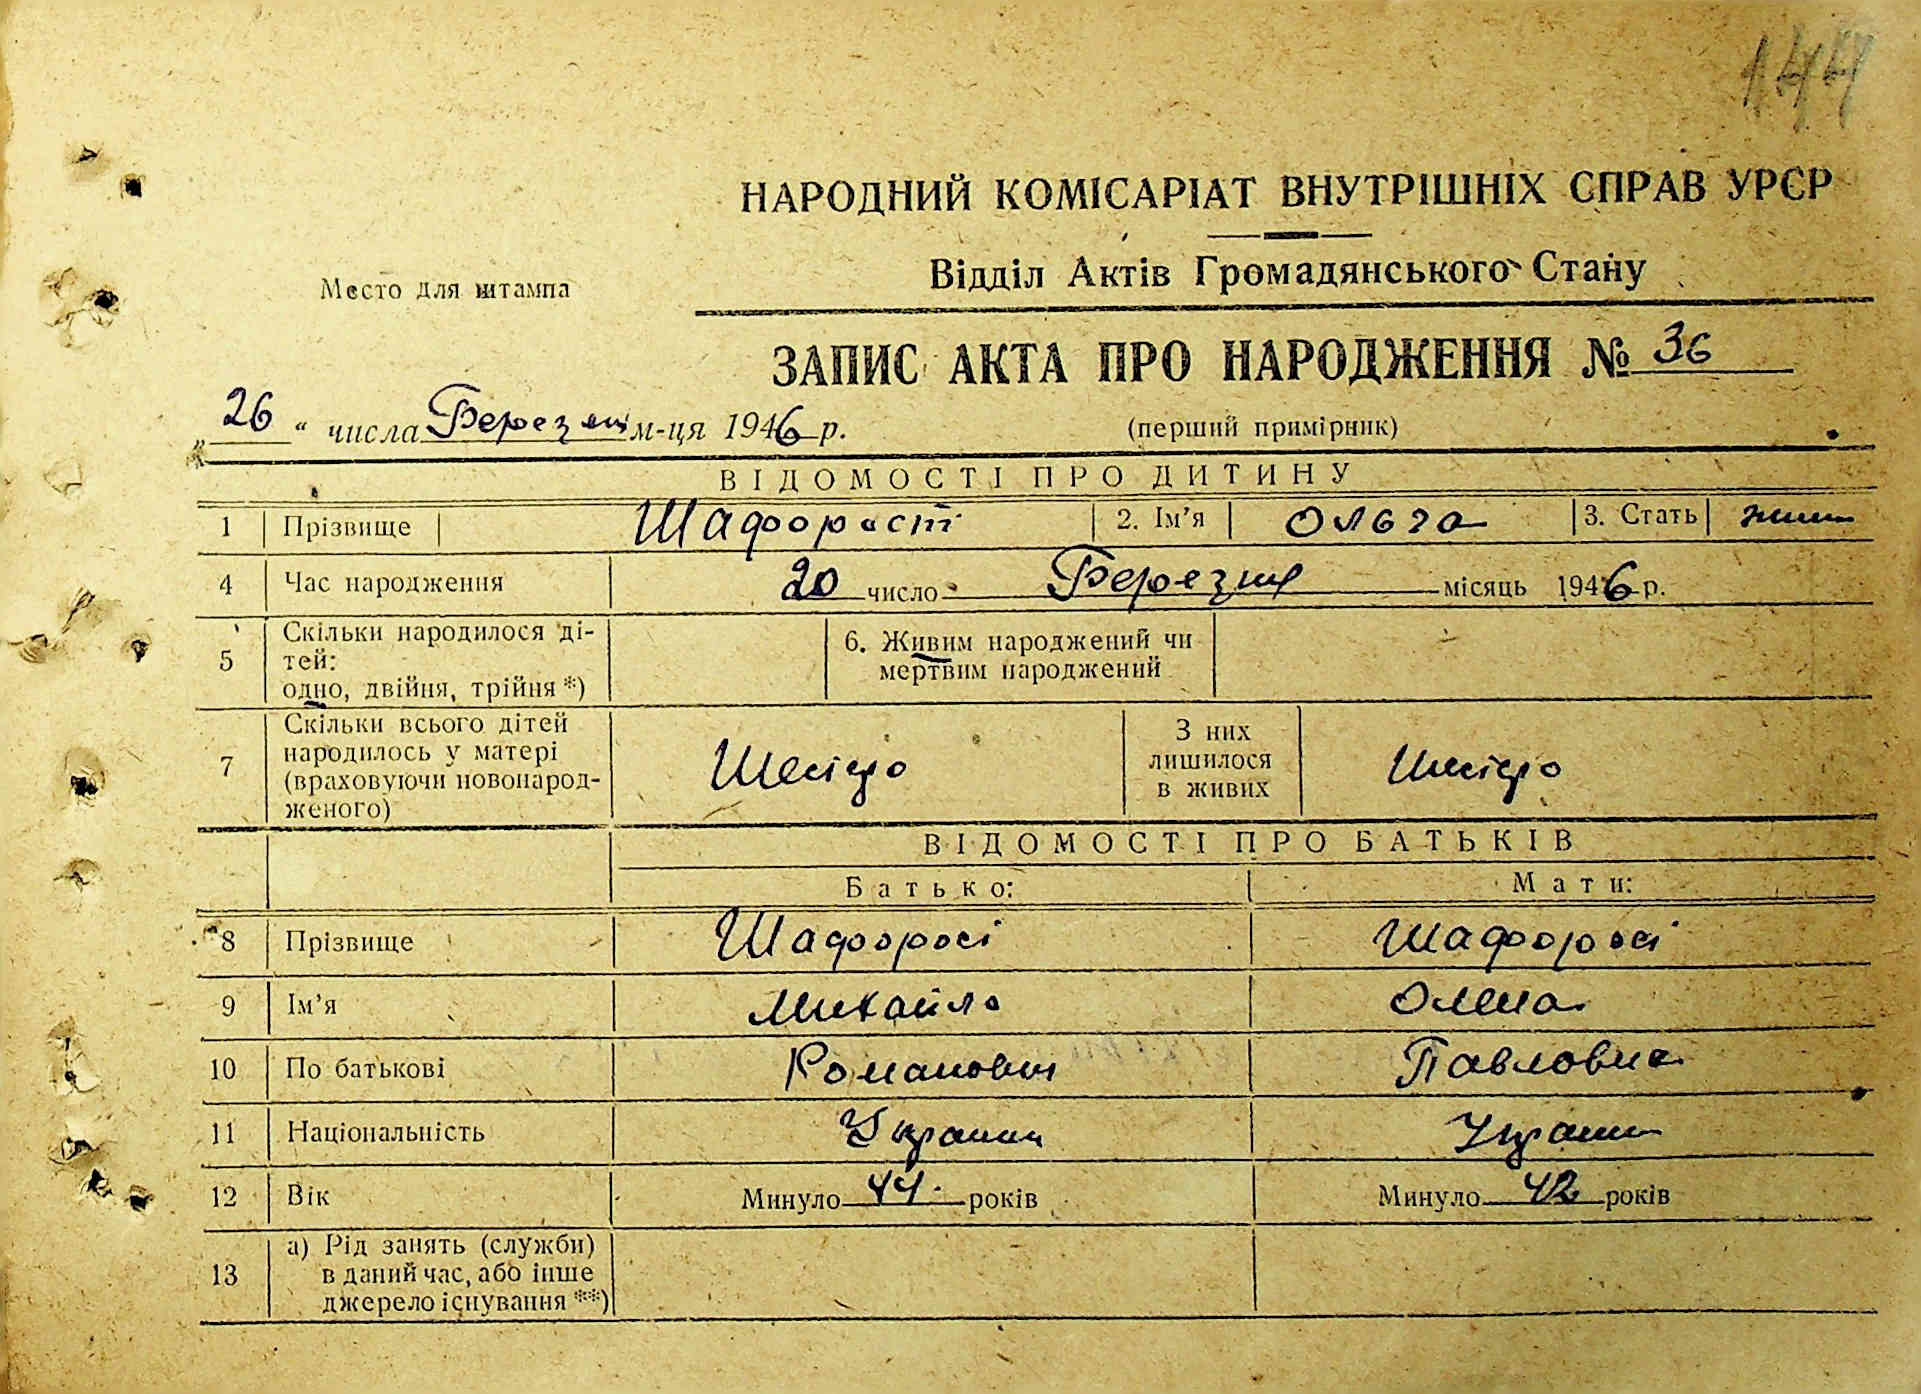 144
НАРОДНИЙ КОМІСАРІАТ ВНУТРІШНІХ СПРАВ УРСР
Відділ Актів Громадянського Стану
Место для штампа
ЗАПИС АКТА ПРО НАРОДЖЕННЯ № 36
„ 26 “ числа Березня м-ця 1946 р. (перший примірник)
ВІДОМОСТІ ПРО ДИТИНУ
1 Прізвище Шафорост 2. Ім’я Ольга 3. Стать жін
4 Час народження 20 число Березня місяць 1946 р.
5 Скільки народилося ді-
тей:
одно, двійня, трійня *)
6. Живим народжений чи
мертвим народжений
7 Скільки всього дітей
народилось у матері
(враховуючи новонарод-
женого)
Шестеро
З них
лишилося
в живих
Шестеро
ВІДОМОСТІ ПРО БАТЬКІВ
Батько: Мати:
8 Прізвище Шафорост Шафорост
9 Ім’я Михайло Олена
10 По батькові Романович Павловна
11 Національність Українець Українка
12 Вік Минуло 44 років Минуло 42 років
13 а) Рід занять (служби)
в даний час, або інше
джерело існування **)